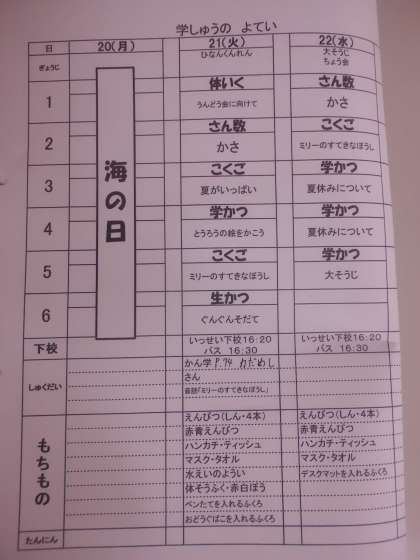 学しゅうの よてい
日 20(月) 21(火) 22(水)
ぎょうじ ひなんくんれん 大そうじ
ちょう会
1 体いく さん数
うんどう会に向けて かさ
2 さん数 こくご
かさ ミリーのすてきなぼうし
海の日
3 こくご 学かつ
夏がいっぱい 夏休みについて
4 学かつ 学かつ
とうろうの絵をかこう 夏休みについて
5 こくご 学かつ
ミリーのすてきなぼうし 大そうじ
6 生かつ
ぐんぐんそだて
下校 いっせい下校16:20 いっせい下校16:20
バス 16:30 バス 16:30
しゅくだい かん学 P.74
さん
音読「ミリーのすてきなぼうし」
もちもの
えんぴつ(しん・4本) えんぴつ(しん・4本)
赤青えんぴつ 赤青えんぴつ
ハンカチ・ティッシュ ハンカチ・ティッシュ
マスク・タオル マスク・タオル
水えいのようい デスクマットを入れるふくろ
体そうふく・赤白ぼう
ペンたてを入れるふくろ
おどうぐばこを入れるふくろ
たんにん